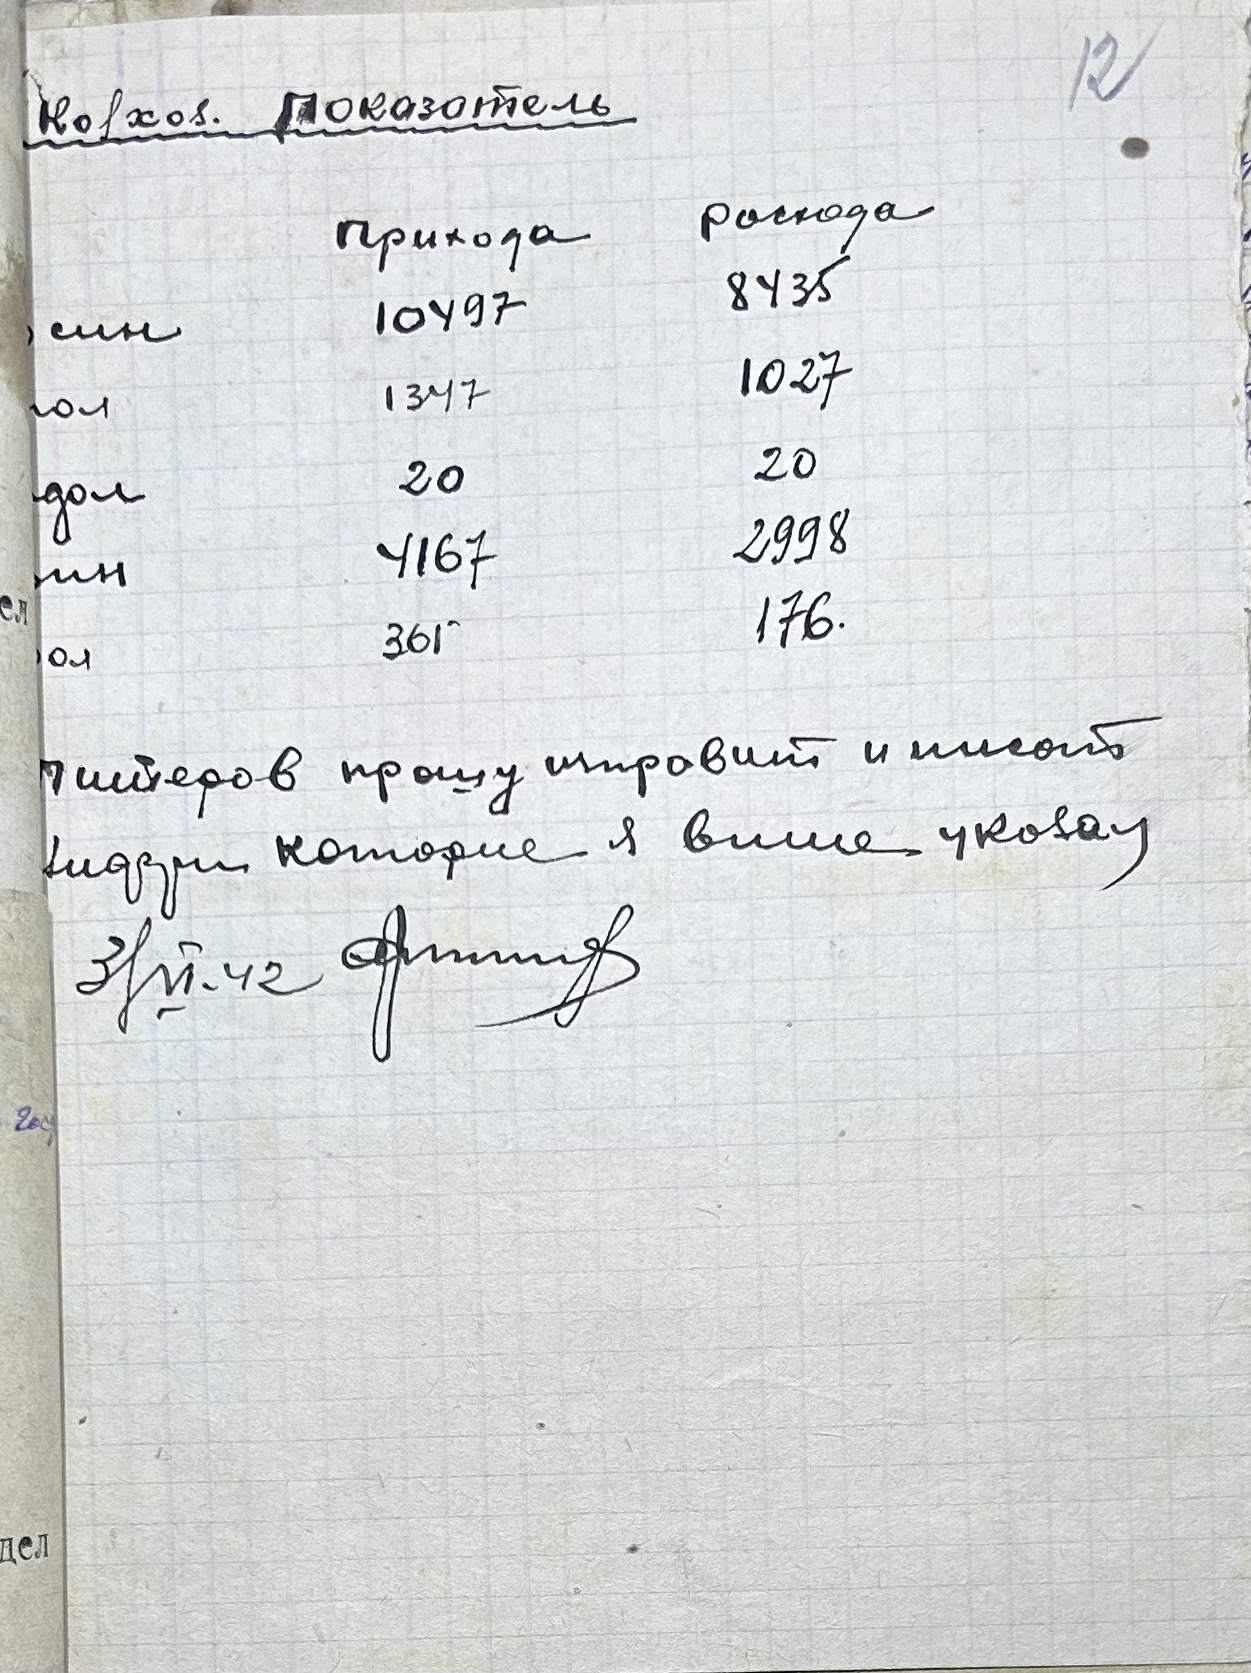 12
Колхоз. Показатель
Прихода Расхода
син 10497 8435
ол 1347 1027
дол 20 20
ин 4167 2998
ол 361 176.
ел
прошу исправит и писат
которие я више указал
3/VI-42
дел